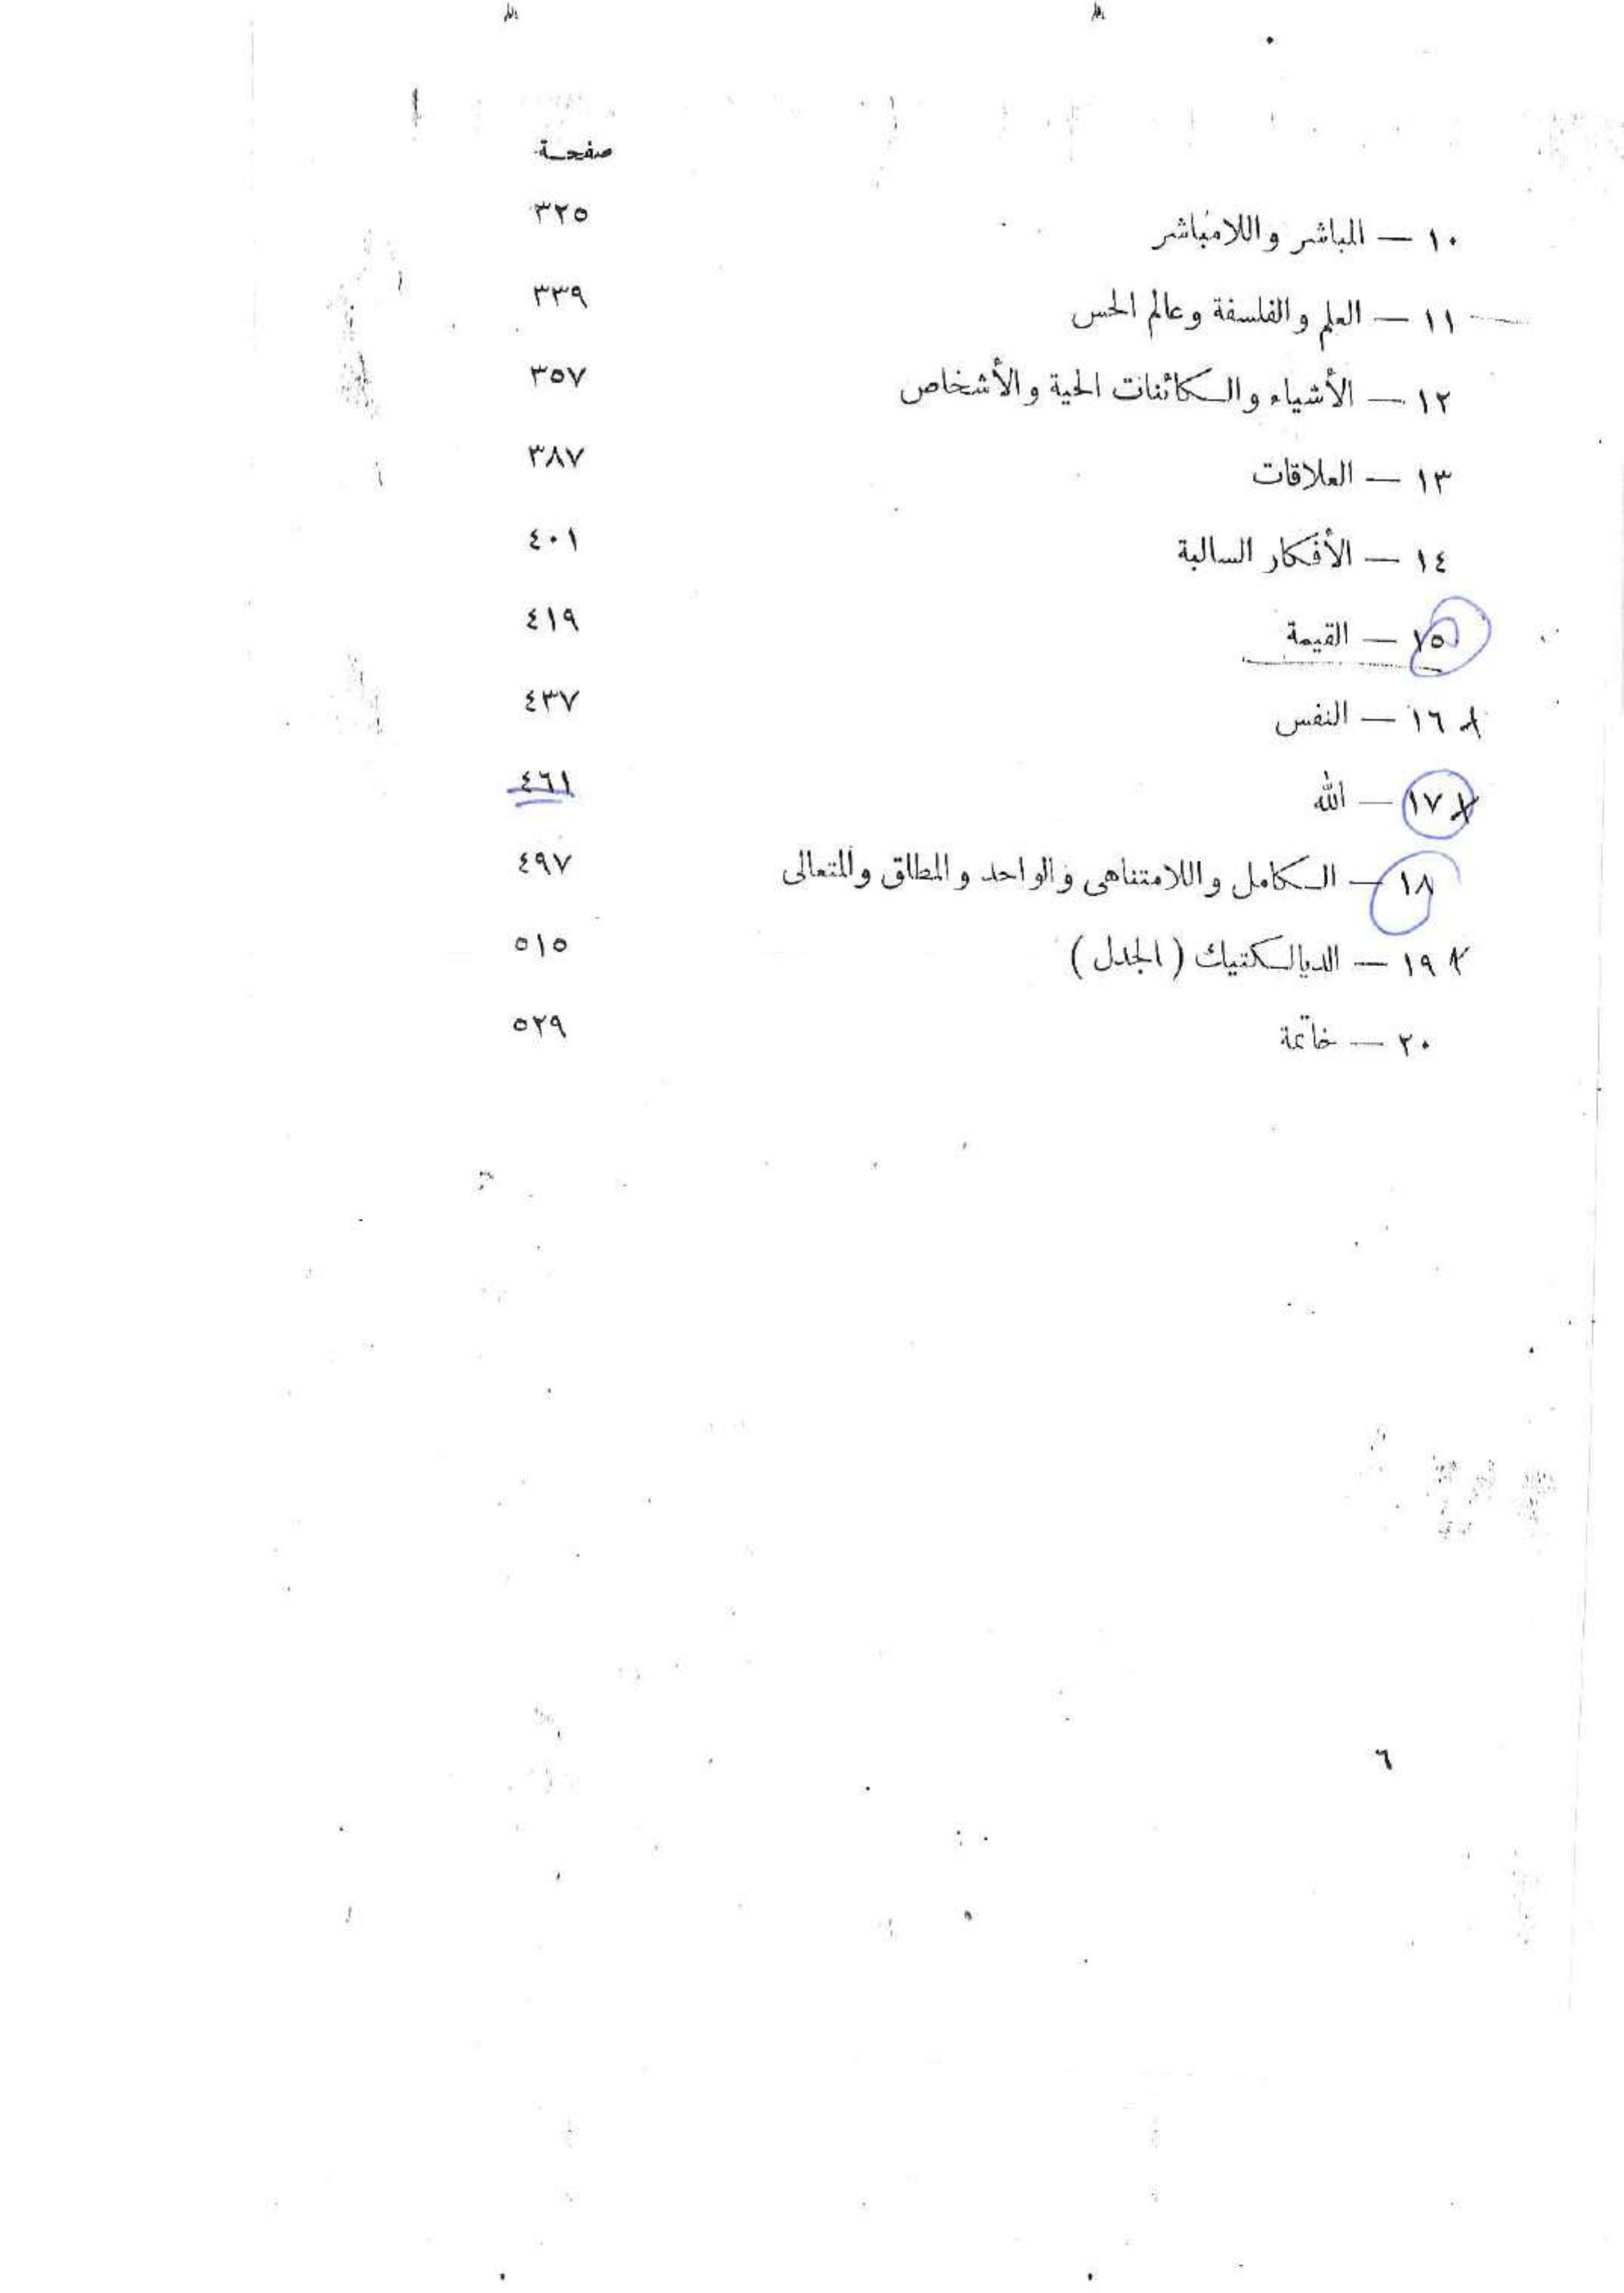 صفحة
١٠ — المباشر واللامباشر ٣٢٥
١١ — العلم والفلسفة وعالم الحس ٣٣٩
١٢ — الأشياء والكائنات الحية والأشخاص ٣٥٧
١٣ — العلاقات ٣٨٧
١٤ — الأفكار السالبة ٤٠١
١٥ — القيمة ٤١٩
١٦ — النفس ٤٣٧
١٧ — الله ٤٦١
١٨ — الكامل واللامتناهى والواحد والمطلق والمتعالى ٤٩٧
١٩ — الديالكتيك ( الجدل ) ٥١٥
٢٠ — خاتمة ٥٢٩
٦